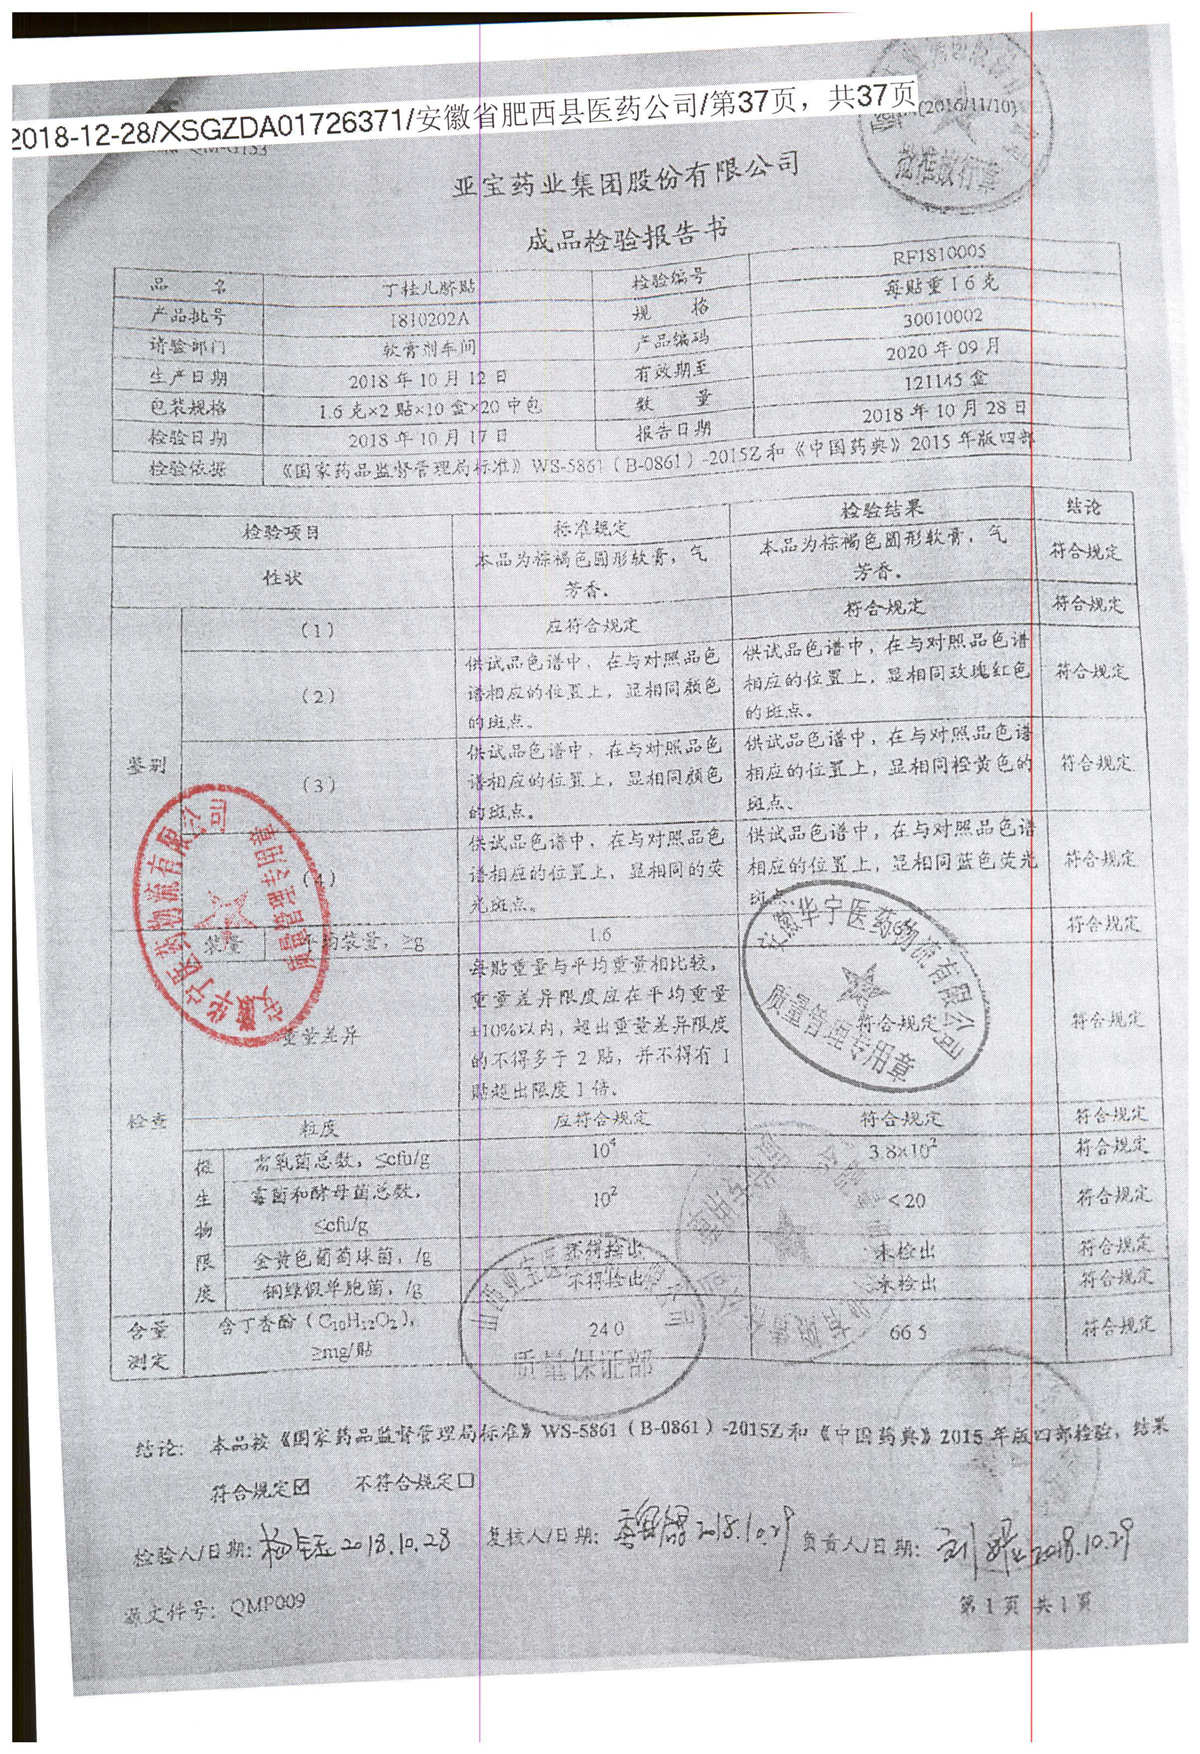 2018-12-28/XSGZDA01726371/安徽省肥西县医药公司/第37页，共37页
(2016/11/10)
QM-G153
批准放行章
亚宝药业集团股份有限公司
成品检验报告书
品 名 丁桂儿脐贴 检验编号 RF1810005
产品批号 1810202A 规 格 每贴重1.6克
请验部门 软膏剂车间 产品编码 30010002
生产日期 2018年10月12日 有效期至 2020年09月
包装规格 1.6克×2贴×10盒×20中包 数 量 121145盒
检验日期 2018年10月17日 报告日期 2018年10月28日
检验依据 《国家药品监督管理局标准》WS-5861（B-0861）-2015Z和《中国药典》2015年版四部
检验项目 标准规定 检验结果 结论
性状 本品为棕褐色圆形软膏，气芳香。 本品为棕褐色圆形软膏，气芳香。 符合规定
鉴别
（1） 应符合规定 符合规定 符合规定
（2） 供试品色谱中，在与对照品色谱相应的位置上，显相同颜色的斑点。 供试品色谱中，在与对照品色谱相应的位置上，显相同玫瑰红色的斑点。 符合规定
（3） 供试品色谱中，在与对照品色谱相应的位置上，显相同颜色的斑点。 供试品色谱中，在与对照品色谱相应的位置上，显相同橙黄色的斑点。 符合规定
（4） 供试品色谱中，在与对照品色谱相应的位置上，显相同的荧光斑点。 供试品色谱中，在与对照品色谱相应的位置上，显相同蓝色荧光斑点 符合规定
检查
装量 平均装量，≥g 1.6 符合规定
重量差异 每贴重量与平均重量相比较，重量差异限度应在平均重量±10%以内，超出重量差异限度的不得多于2贴，并不得有1贴超出限度1倍。 符合规定 符合规定
粒度 应符合规定 符合规定 符合规定
微生物限度
需氧菌总数，≤cfu/g 10⁴ 3.8×10² 符合规定
霉菌和酵母菌总数，≤cfu/g 10² <20 符合规定
金黄色葡萄球菌，/g 不得检出 未检出 符合规定
铜绿假单胞菌，/g 不得检出 未检出 符合规定
含量测定 含丁香酚（C₁₀H₁₂O₂），≥mg/贴 24.0 66.5 符合规定
安徽华宁医药物流有限公司
安徽华宁医药物流有限公司
质量管理专用章
质量保证部
结论： 本品按《国家药品监督管理局标准》WS-5861（B-0861）-2015Z和《中国药典》2015年版四部检验，结果
符合规定☑ 不符合规定□
检验人/日期： 2018.10.28 复核人/日期： 2018.10.29 负责人/日期： 2018.10.29
源文件号：QMP009
第1页 共1页